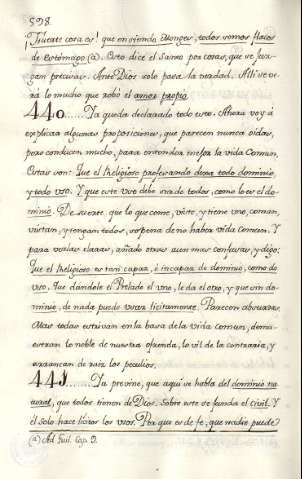 598.
¡Fuerte cosa es! que en viendo Monges, todos somos flacos
de Estómago (a). Esto dice el Santo por cosas, que se juz-
gan precisas. Ante Dios solo pasa la verdad. Allí se ve-
rá lo mucho que robó el amor propio.
440..... Ya queda declarado todo esto. Ahora voy á
explicar algunas proposiciones, que parecen nunca oidas,
pero conducen mucho, para entender mejor la vida Comun.
Estas son: Que el Religioso profesando dexa todo dominio,
y todo uso. Y que este Uso debe ser de todos, como lo es el do-
minio. De suerte que lo que come, viste, y tiene uno, coman,
vistan, y tengan todos, so pena de no haber vida Comun. Y
para varias clases, añado otras aun mas confusas, y digo:
Que el Religioso es tan capaz, é incapaz de dominio, como de
uso. Que dandole el Prelado el uno, le da el otro, y que sin do-
minio, de nada puede usar licitamente. Parecen absurdas.
Mas todas estrivan en la basa de la vida Comun, demu-
estran lo noble de nuestra ofrenda, lo vil de la contraria, y
arrancan de raiz los peculios.
441..... Ya previne, que aqui se habla del dominio na-
tural, que todos tienen de Dios. Sobre este se funda el Civil. Y
el solo hace lícitos los usos. Por que es de fe, que nadie puede
(a) Ad Guil. Cap. 9.